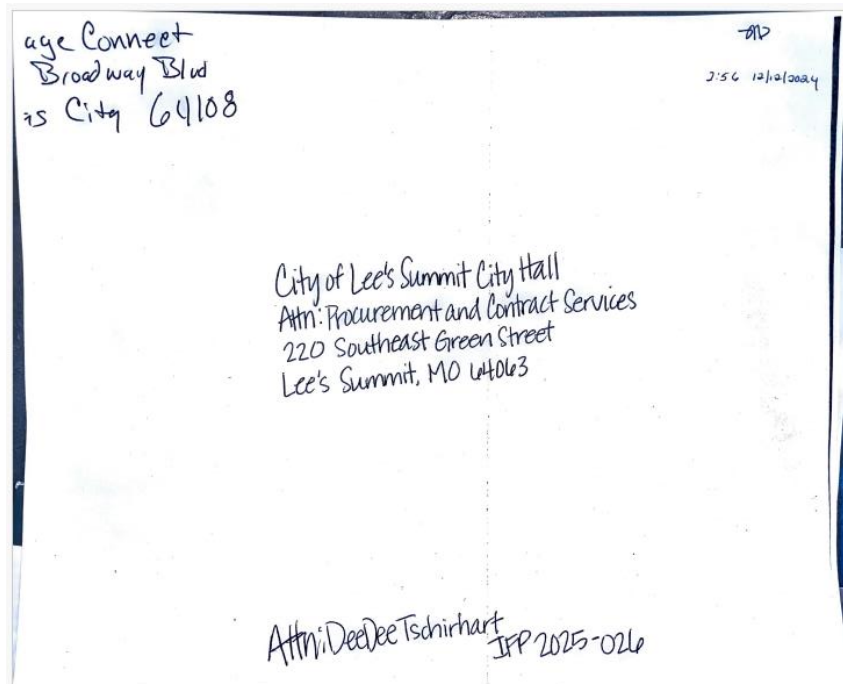 age Connect
Broadway Blvd
as City 64108
2:56 12/12/2024
City of Lee's Summit City Hall
Attn: Procurement and Contract Services
220 Southeast Green Street
Lee's Summit, MO 64063
Attn: DeeDee Tschirhart
IFP 2025-026